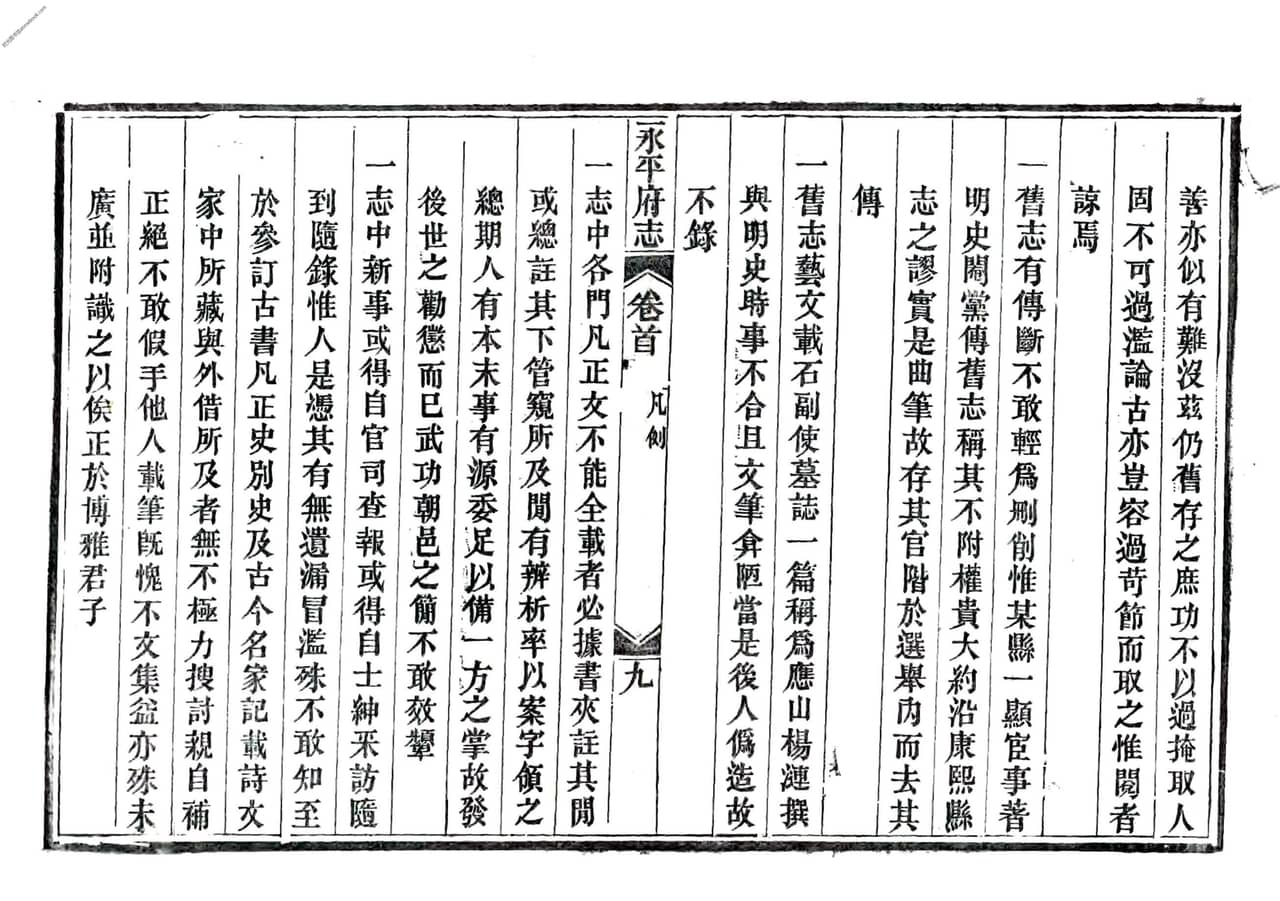 善亦似有難沒茲仍舊存之庶功不以過掩取人
固不可過濫論古亦豈容過苛節而取之惟閱者
諒焉
一舊志有傳斷不敢輕爲刪削惟某縣一顯宦事著
明史閹黨傳舊志稱其不附權貴大約沿康熙縣
志之謬實是曲筆故存其官階於選舉內而去其
傳
一舊志藝文載石副使墓誌一篇稱爲應山楊漣撰
與明史時事不合且文筆弇陋當是後人僞造故
不錄
永平府志 卷首 凡例 九
一志中各門凡正文不能全載者必據書夾註其閒
或總註其下管窺所及閒有辨析率以案字領之
總期人有本末事有源委足以備一方之掌故發
後世之勸懲而已武功朝邑之簡不敢效顰
一志中新事或得自官司查報或得自士紳采訪隨
到隨錄惟人是憑其有無遺漏冒濫殊不敢知至
於參訂古書凡正史別史及古今名家記載詩文
家中所藏與外借所及者無不極力搜討親自補
正絕不敢假手他人載筆旣愧不文集益亦殊未
廣並附識之以俟正於博雅君子